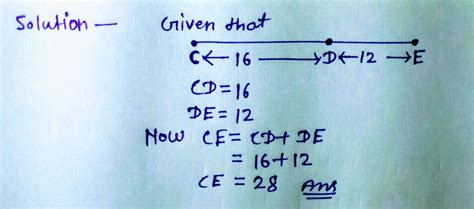 Solution — Given that
C ← 16 → D ← 12 → E
CD = 16
DE = 12
Now CE = CD + DE
= 16 + 12
CE = 28 Ans